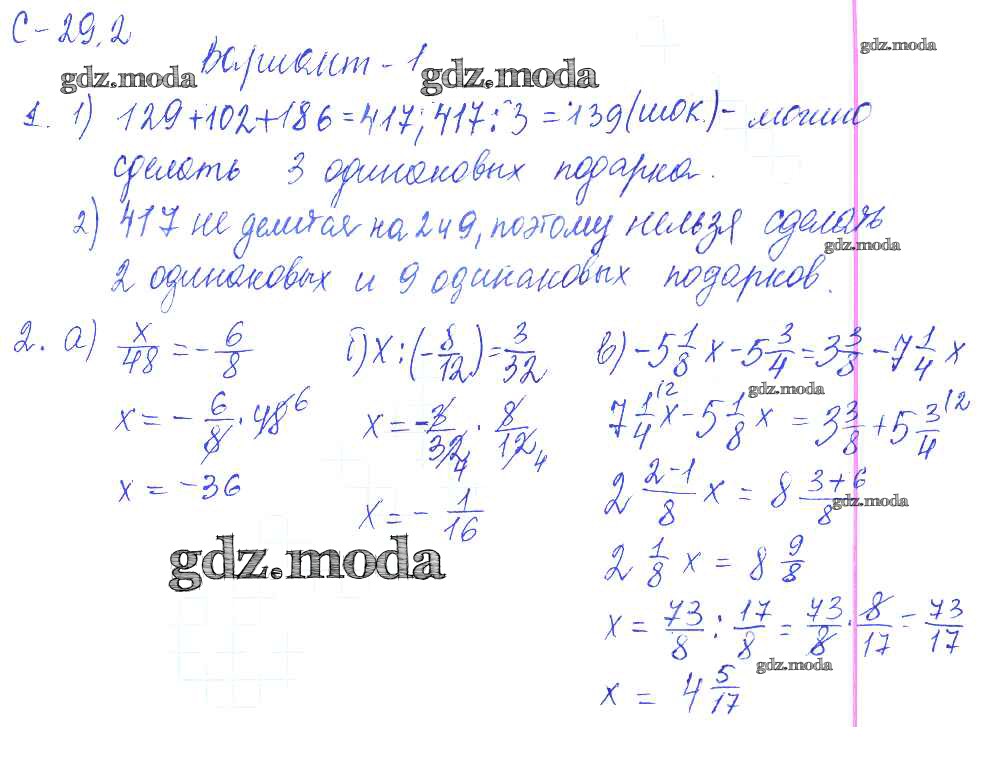 С-29,2
Вариант-1
gdz.moda
gdz.moda
gdz.moda
1. 1) 129+102+186=417; 417:3=139(шок.)- можно
сделать 3 одинаковых подарка.
2) 417 не делится на 2 и 9, поэтому нельзя сделать
gdz.moda
2 одинаковых и 9 одинаковых подарков.
2. а) x/48 = -6/8
x = -6/8 · 48 6
x = -36
б) x : (-8/12) = 3/32
x = -3/32 4 · 8/12 4
x = -1/16
в) -5 1/8 x - 5 3/4 = 3 3/8 - 7 1/4 x
gdz.moda
7 1/4 |2 x - 5 1/8 x = 3 3/8 + 5 3/4 |2
2 2-1/8 x = 8 3+6/8
gdz.moda
2 1/8 x = 8 9/8
x = 73/8 : 17/8 = 73/8 · 8/17 = 73/17
gdz.moda
x = 4 5/17
gdz.moda